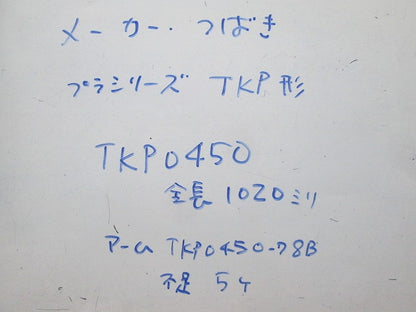 メーカー. つばき
プラシリーズ TKP形
TKP0450
全長 1020ミリ
アーム TKP0450-78B
不足 5ケ